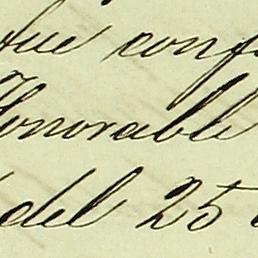 fue conf
Honorable
del 25